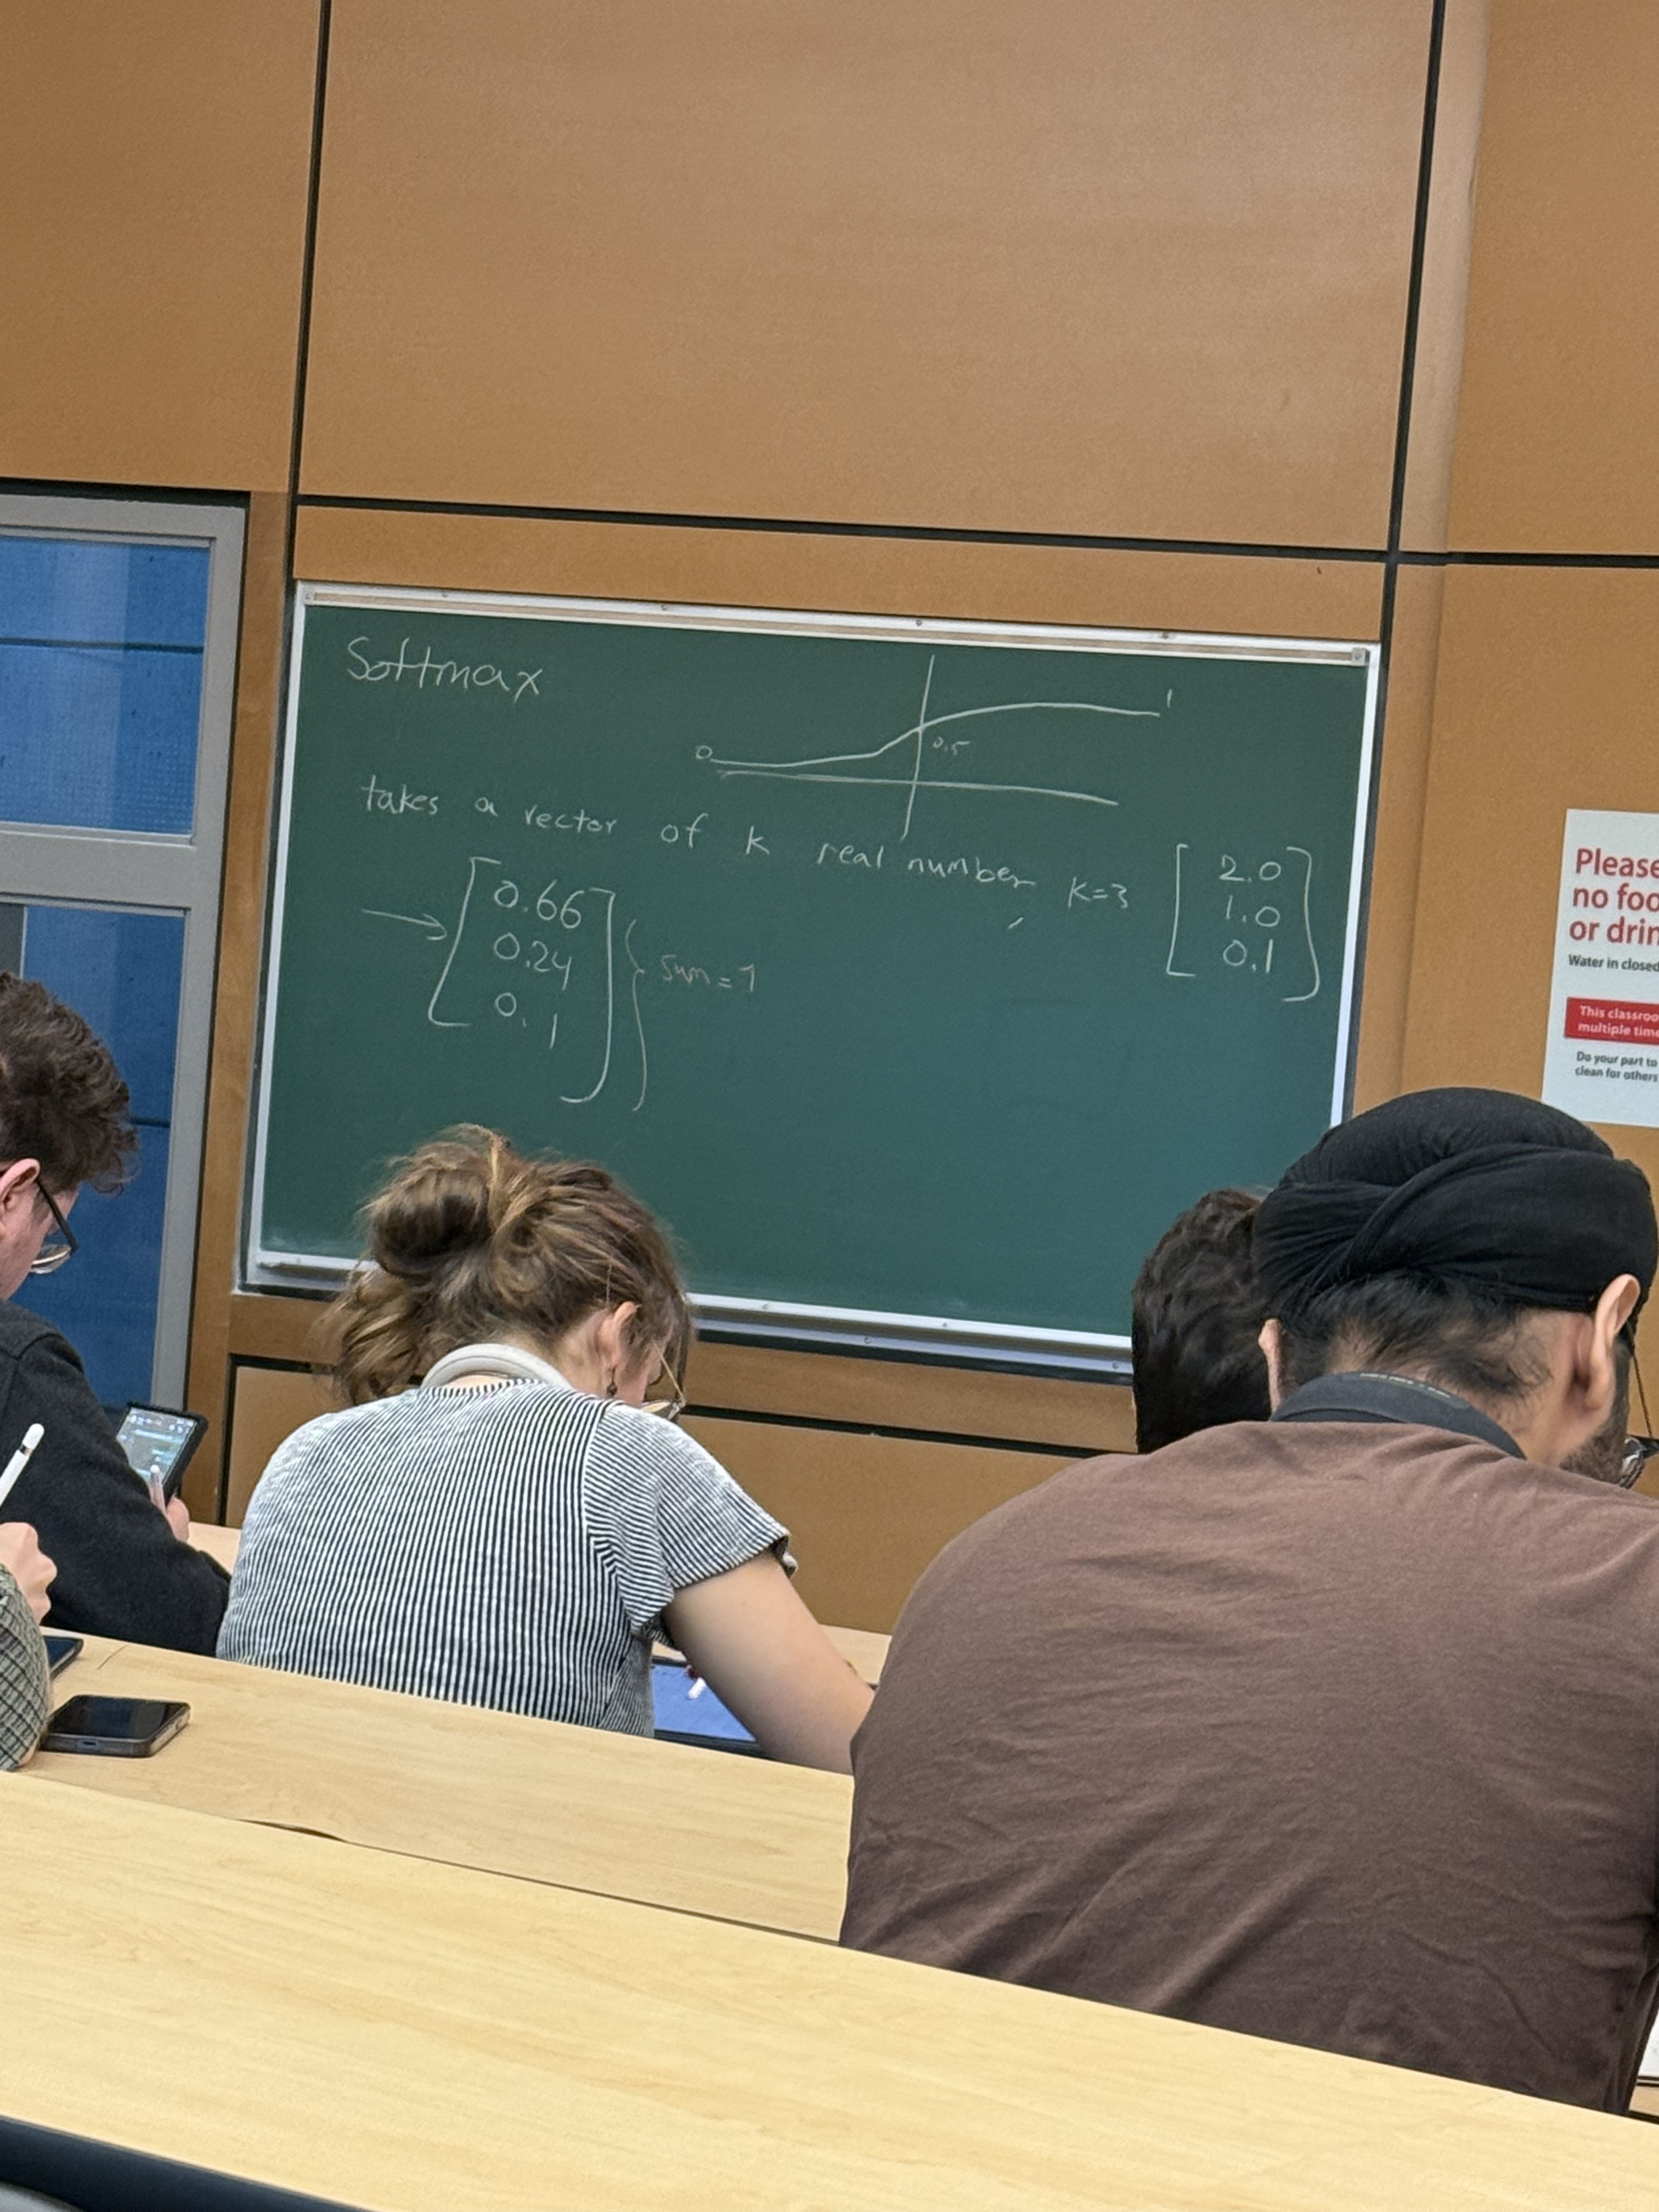 Softmax
0 0.5 1
takes a vector of k real number, k=3 [2.0
1.0
0.1]
→ [0.66
0.24
0.1] } sum = 1
Please
no foo
or drin
Water in closed
This classroo
multiple time
Do your part to
clean for others